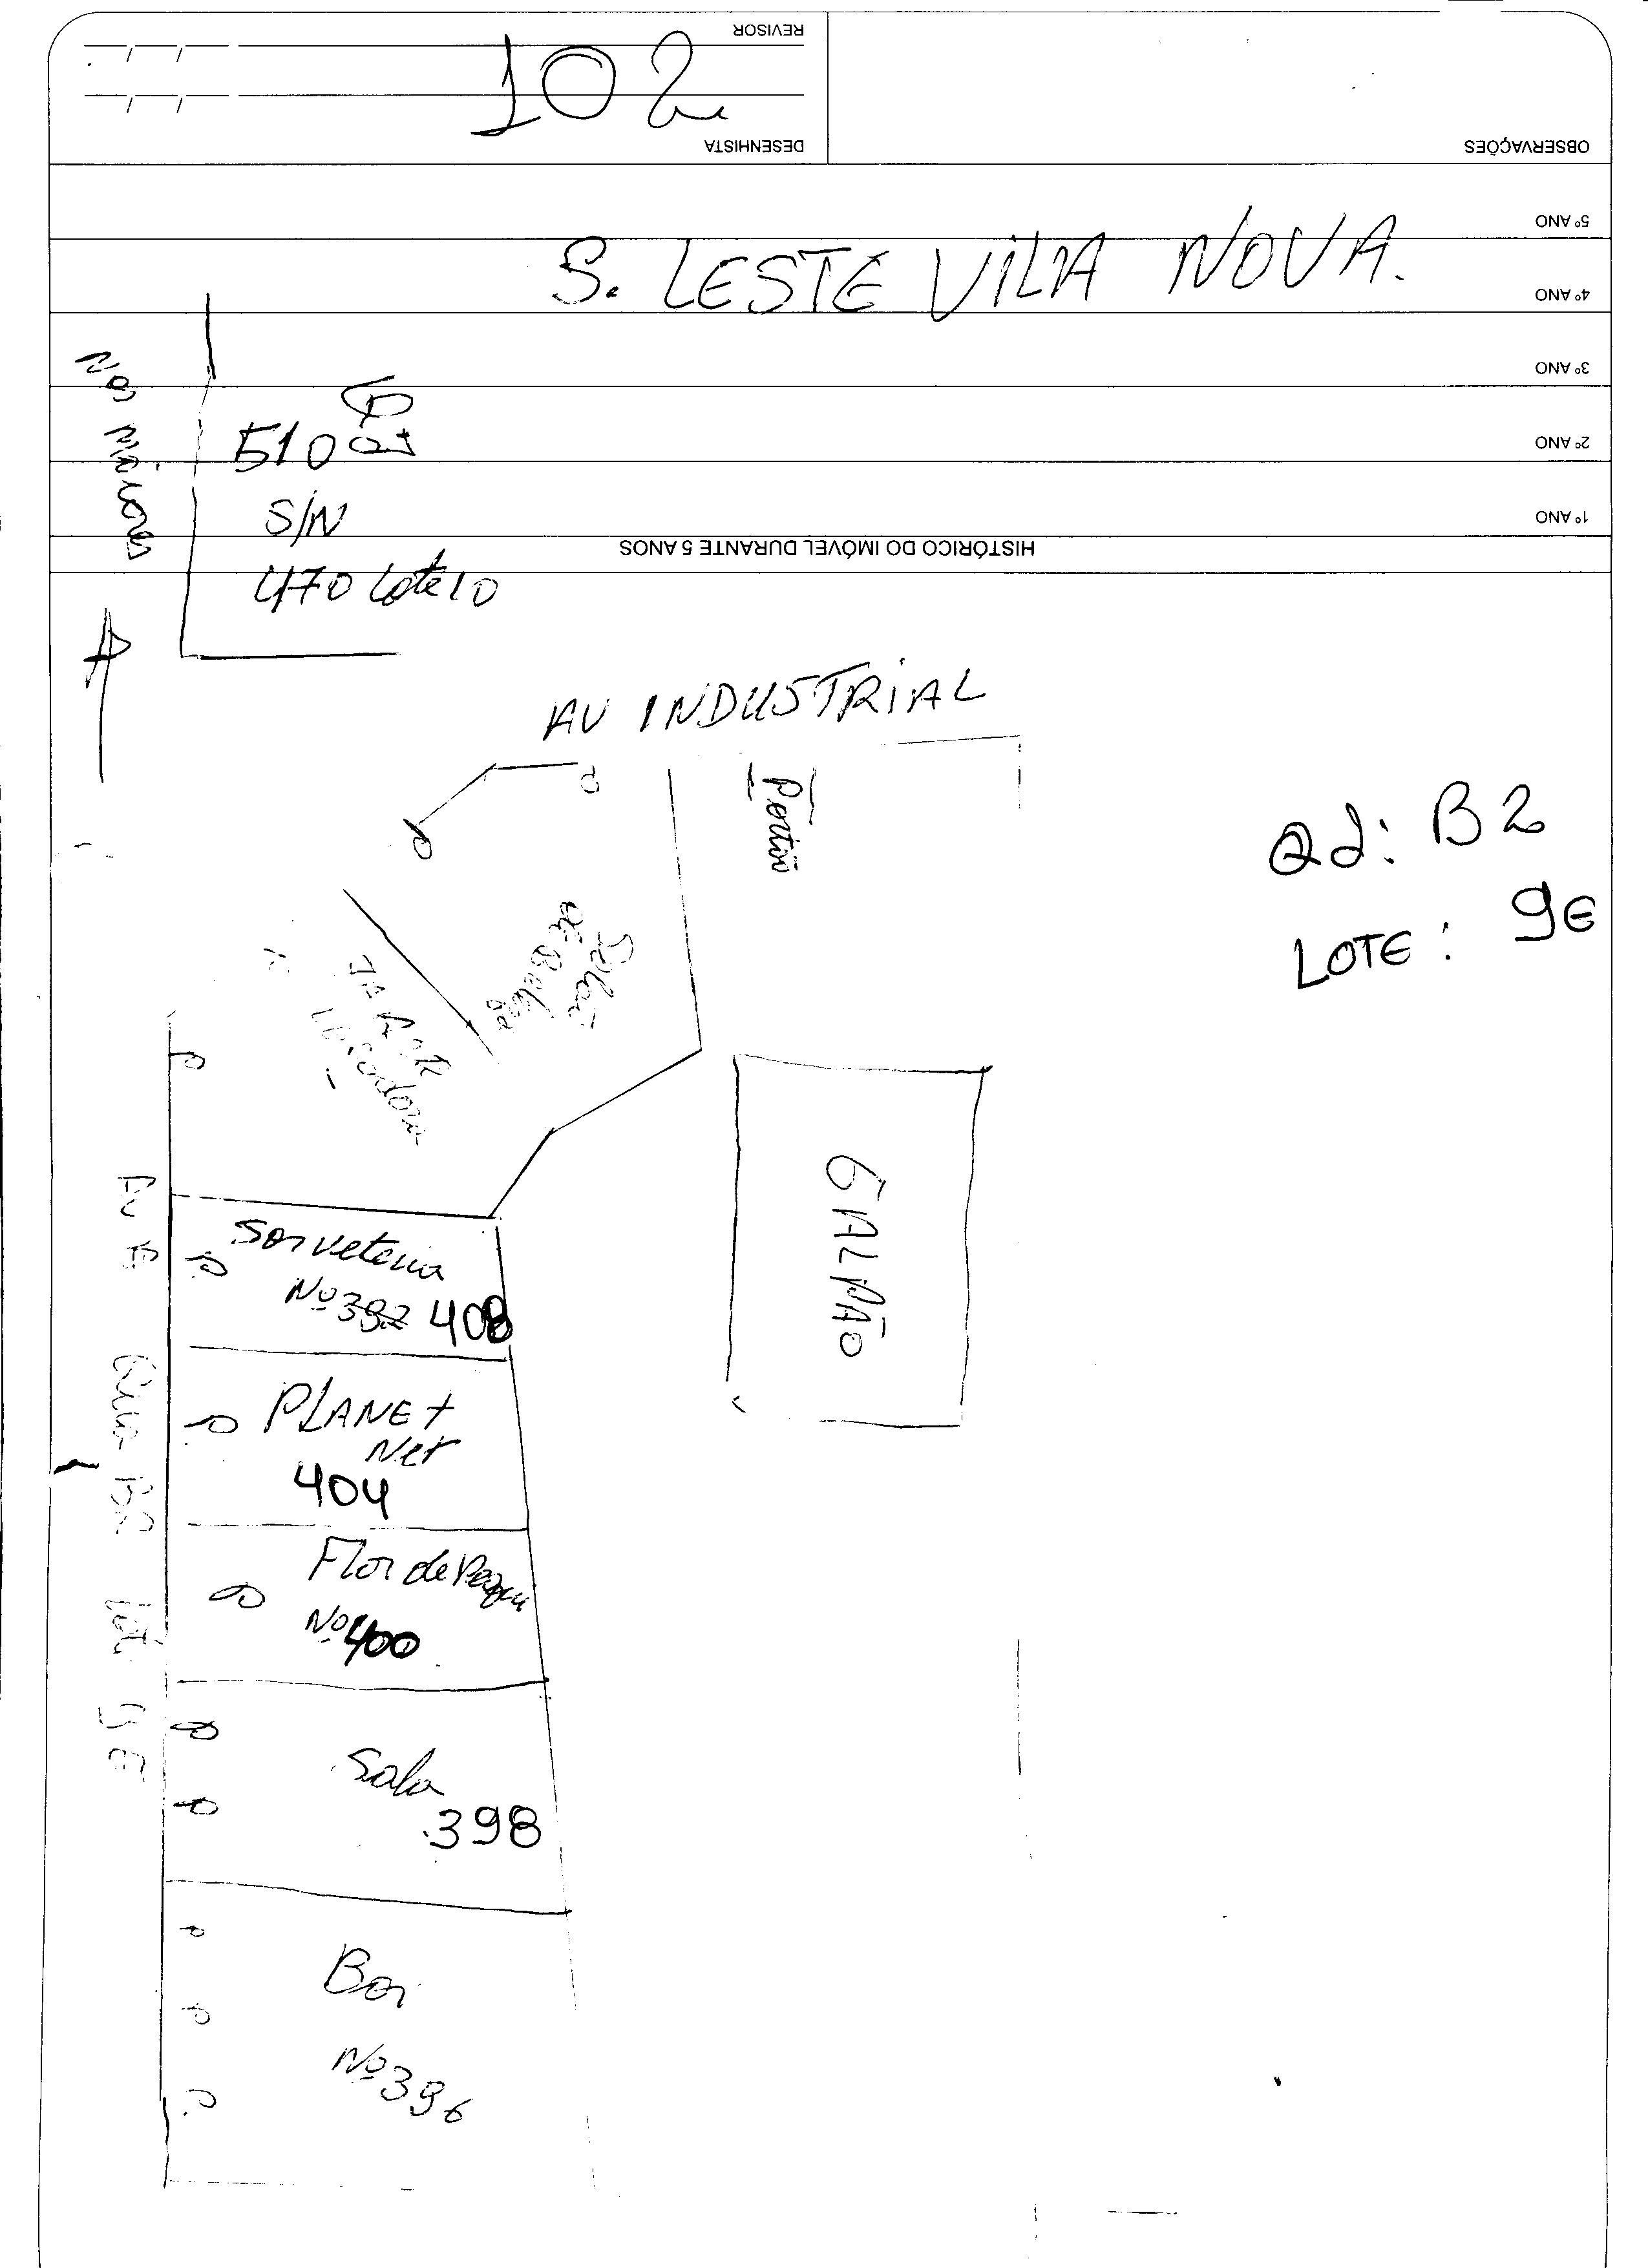 REVISOR
102
DESENHISTA
OBSERVAÇÕES
5º ANO
S. LESTE VILA NOVA.
4º ANO
3º ANO
2º ANO
510
1º ANO
S/N
HISTÓRICO DO IMÓVEL DURANTE 5 ANOS
470 Lote 10
AV INDUSTRIAL
Portão
Qd: B2
LOTE: 9E
GALPÃO
Sorveteria
Nº 392 408
PLANET
Net
404
Flor de Pequi
Nº 400
Sala
398
Boi
Nº 396